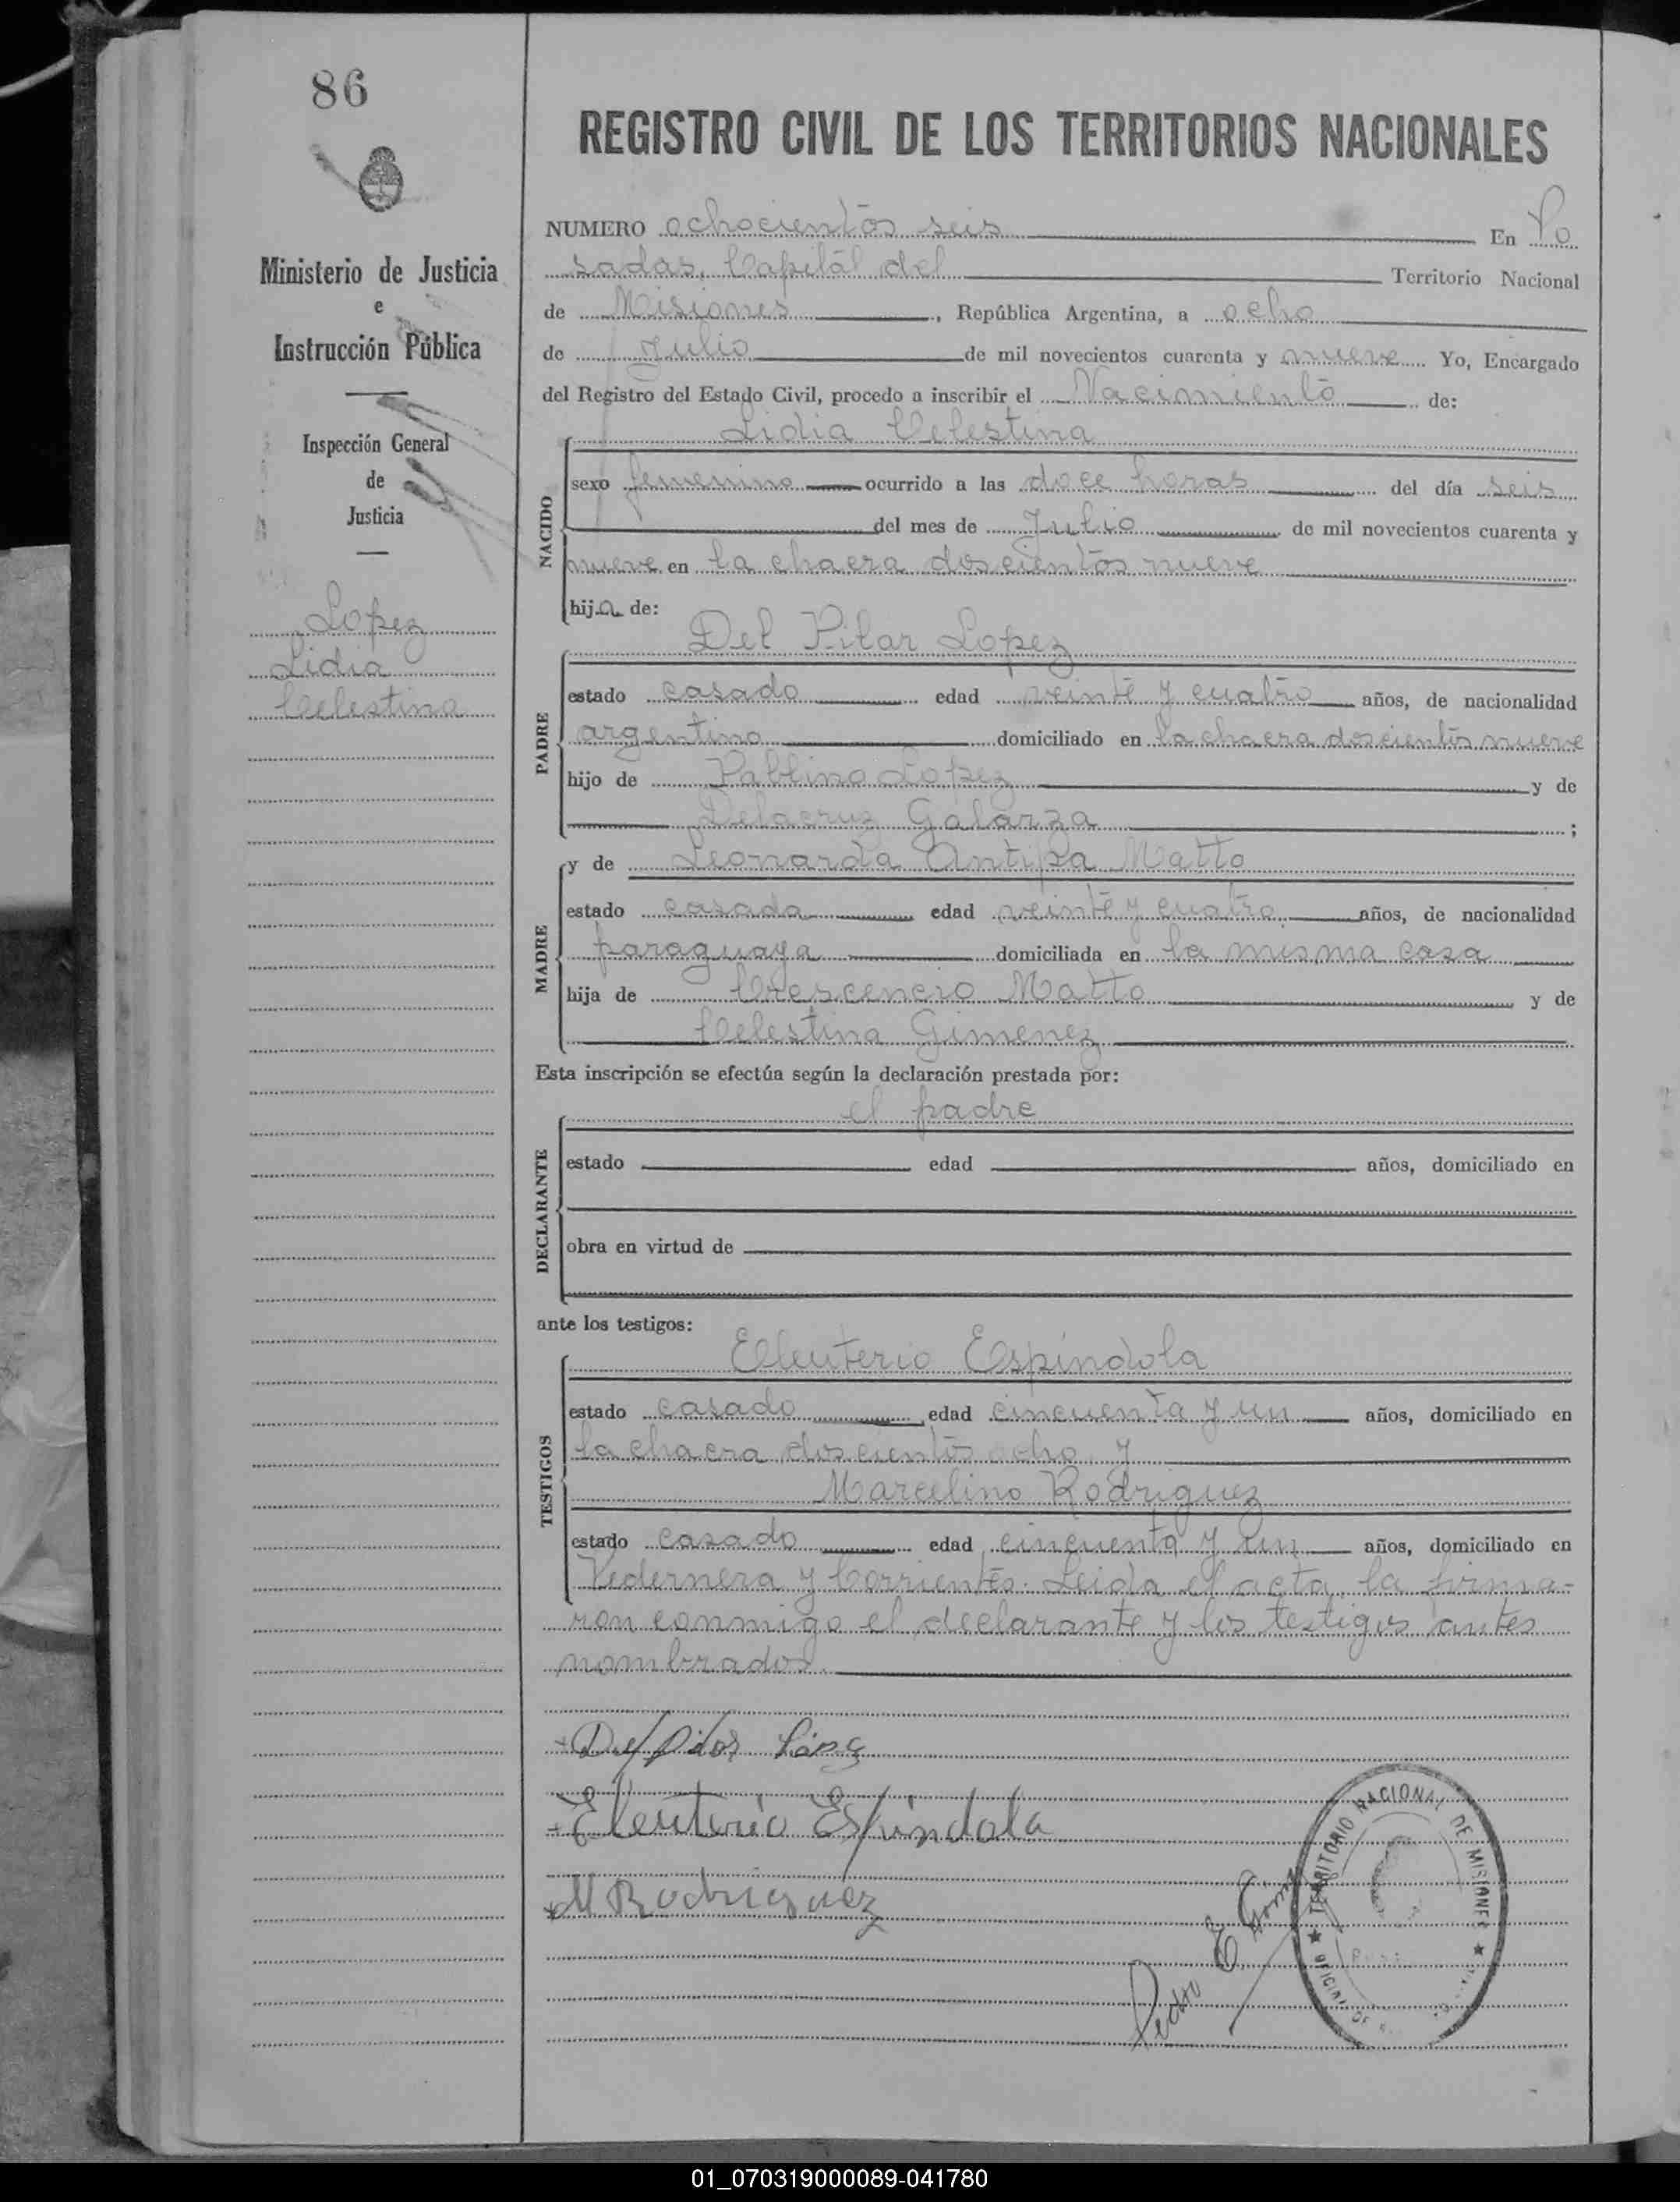 86
REGISTRO CIVIL DE LOS TERRITORIOS NACIONALES
Ministerio de Justicia
e
Instrucción Pública
Inspección General
de
Justicia
Lopez
Lidia
Celestina
NUMERO ochocientos seis En Po
sadas, Capital del Territorio Nacional
de Misiones, República Argentina, a ocho
de Julio de mil novecientos cuarenta y nueve Yo, Encargado
del Registro del Estado Civil, procedo a inscribir el Nacimiento de:
NACIDO
Lidia Celestina
sexo femenino ocurrido a las doce horas del día seis
del mes de Julio de mil novecientos cuarenta y
nueve en la chacra doscientos nueve
hija de:
PADRE
Del Pilar Lopez
estado casado edad veinte y cuatro años, de nacionalidad
argentino domiciliado en la chacra doscientos nueve
hijo de Pablino Lopez y de
Delacruz Galarza ;
MADRE
y de Leonarda Antipa Matto
estado casada edad veinte y cuatro años, de nacionalidad
paraguaya domiciliada en la misma casa
hija de Crescencio Matto y de
Celestina Gimenez
Esta inscripción se efectúa según la declaración prestada por:
DECLARANTE
el padre
estado edad años, domiciliado en
obra en virtud de
ante los testigos:
TESTIGOS
Eleuterio Espindola
estado casado edad cincuenta y un años, domiciliado en
la chacra doscientos ocho y
Marcelino Rodriguez
estado casado edad cincuenta y un años, domiciliado en
Pedernera y Corrientes. Leida el acta, la firma-
ron conmigo el declarante y los testigos antes
nombrados.
Del Pilar López
Eleuterio Espindola
M Rodriguez
Pedro E
TERRITORIO NACIONAL DE MISIONES
OFICINA DE
01_070319000089-041780